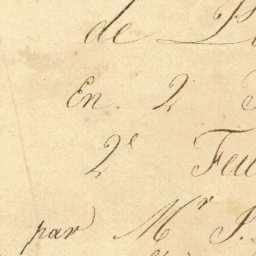 de
En. 2
2e Feu
par Mr J.